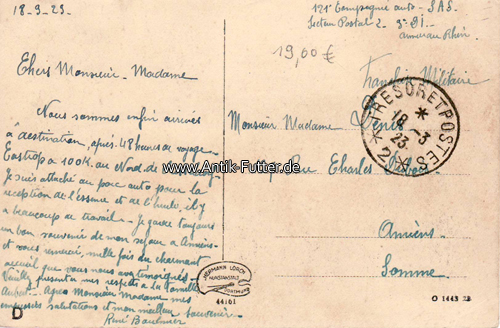 18-3-23
121e Compagnie auto - SAS
Secteur Postal 2 -
19,00 €
Français Militaire
Chers Monsieur - Madame
TRESOR ET POSTES
18 -3
23
* 2 *
Nous sommes enfin arrivés
à destination, après 48 heures de voyage
à 100K. au Nord de
Je suis attaché au parc auto pour la
réception de l'essence et de l'huile, il y
a beaucoup de travail - je garde toujours
un bon souvenir de mon séjour à Amiens
et vous remercie mille fois du charmant
accueil que vous nous avez témoignés -
Veuillez présenter mes respects à la famille
Agréez Monsieur Madame mes
salutations et mon meilleur souvenir -
René
Monsieur Madame Denis
Rue Charles
Amiens
Somme
www.Antik-Futter.de
HERMANN LORCH
DORTMUND
44101
D
O 1443 22